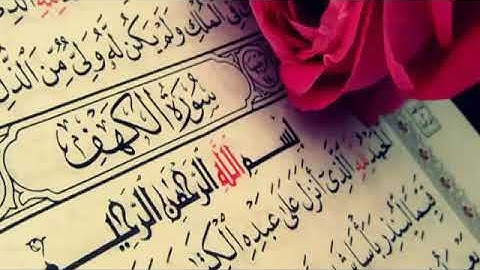 لله
ٱلْمُلْكِ وَلَمْ يَكُن لَّهُۥ وَلِىٌّ مِّنَ ٱلذُّلِّ
سُورَةُ الكَهْفِ
بِسْمِ ٱللَّهِ ٱلرَّحْمَٰنِ ٱلرَّحِيمِ
ٱلْحَمْدُ لِلَّهِ ٱلَّذِىٓ أَنزَلَ عَلَىٰ عَبْدِهِ ٱلْكِتَٰبَ
قَيِّمًا لِّيُنذِرَ بَأْسًا شَدِيدًا